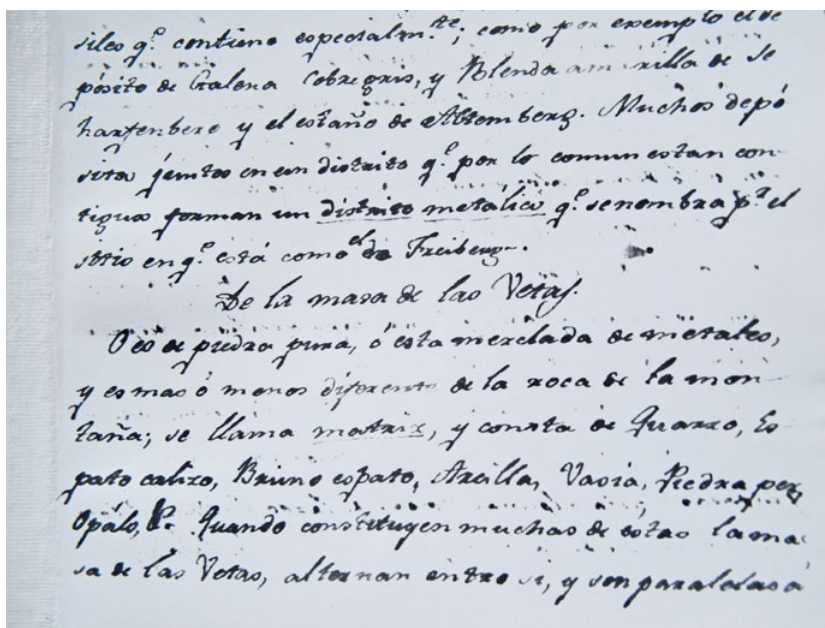 siles q.e contiene especialm.te; como por exemplo el de
pósito de Galena Cobregris, y Blenda amarilla de Sc
harfenberg y el estaño de Altemberg. Muchos depó
sitos juntos en un distrito q.e por lo comun estan con
tiguos forman un distrito metálico q.e se nombra p.r el
sitio en q.e está como el de Freiberg.
De la masa de las Vetas.
O es de piedra pura, ó esta mezclada de metales,
y es mas ó menos diferente de la roca de la mon
taña; se llama matriz, y consta de Quarzo, Es
pato calizo, Bruno espato, Arcilla, Piedra pez,
Opálo, &. Quando constituyen muchas de estas la ma
sa de las Vetas, alternan entre si, y son paralelas á